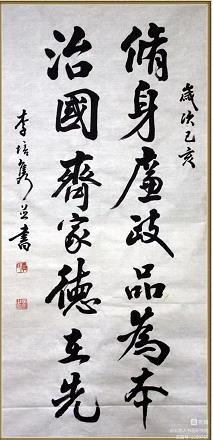 歲次己亥
脩身廉政品為本
治國齊家德在先
李培雋並書